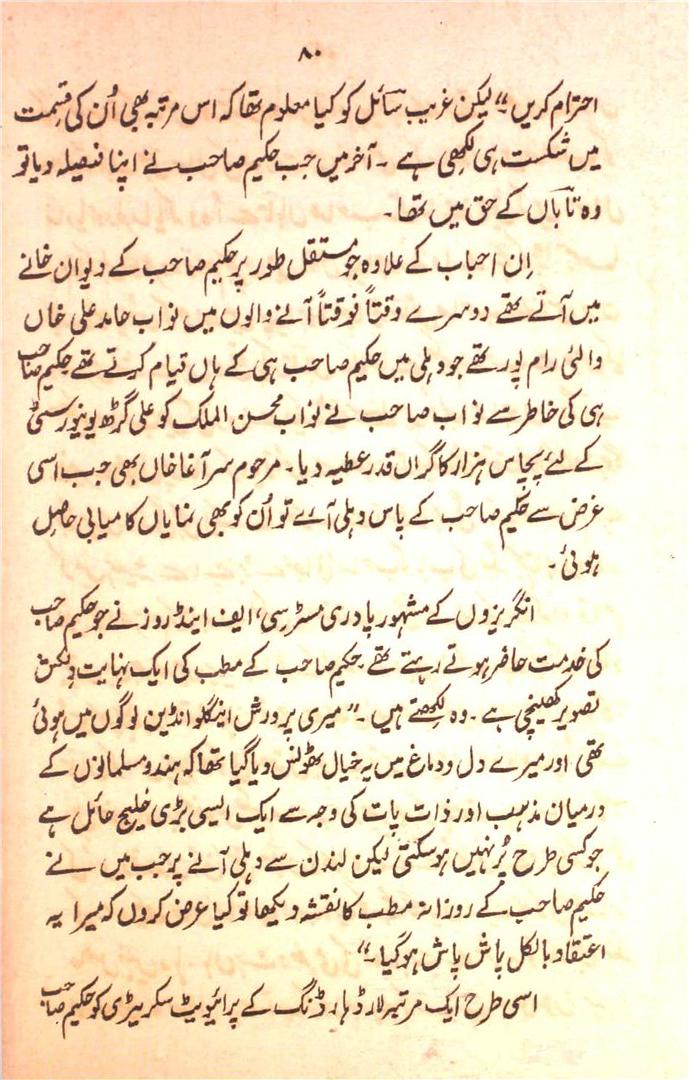 ۸۰
احترام کریں۔“ لیکن غریب سائل کو کیا معلوم تھا کہ اس مرتبہ بھی اُن کی قسمت
میں شکست ہی لکھی ہے ۔ آخر میں جب حکیم صاحب نے اپنا فیصلہ دیا تو
وہ تاباں کے حق میں تھا۔
اِن احباب کے علاوہ جو مستقل طور پر حکیم صاحب کے دیوان خانے
میں آتے تھے دوسرے وقتاً فوقتاً آنے والوں میں نواب حامد علی خاں
والئی رام پور تھے جو دہلی میں حکیم صاحب ہی کے ہاں قیام کرتے تھے حکیم صاحب
ہی کی خاطر سے نواب صاحب نے نواب محسن الملک کو علی گڑھ یونیورسٹی
کے لئے پچاس ہزار کا گراں قدر عطیہ دیا۔ مرحوم سر آغا خاں بھی جب اسی
غرض سے حکیم صاحب کے پاس دہلی آے تو اُن کو بھی نمایاں کامیابی حاصل
ہوئی ۔
انگریزوں کے مشہور پادری مسٹر سی، ایف اینڈروز نے جو حکیم صاحب
کی خدمت حاضر ہوتے رہتے تھے ۔ حکیم صاحب کے مطب کی ایک نہایت دلکش
تصویر کھینچی ہے ۔ وہ لکھتے ہیں ۔” میری پرورش اینگلو انڈین لوگوں میں ہوئی
تھی اور میرے دل و دماغ میں یہ خیال ٹھونس دیا گیا تھا کہ ہندو مسلمانوں کے
درمیان مذہب اور ذات پات کی وجہ سے ایک ایسی بڑی خلیج حائل ہے
جو کسی طرح پُر نہیں ہو سکتی لیکن لندن سے دہلی آنے پر جب میں نے
حکیم صاحب کے روزانہ مطب کا نقشہ دیکھا تو کیا عرض کروں کہ میرا یہ
اعتقاد بالکل پاش پاش ہو گیا ۔“
اسی طرح ایک مرتبہ لارڈ ہارڈنگ کے پرائیویٹ سکریٹری کو حکیم صاحب